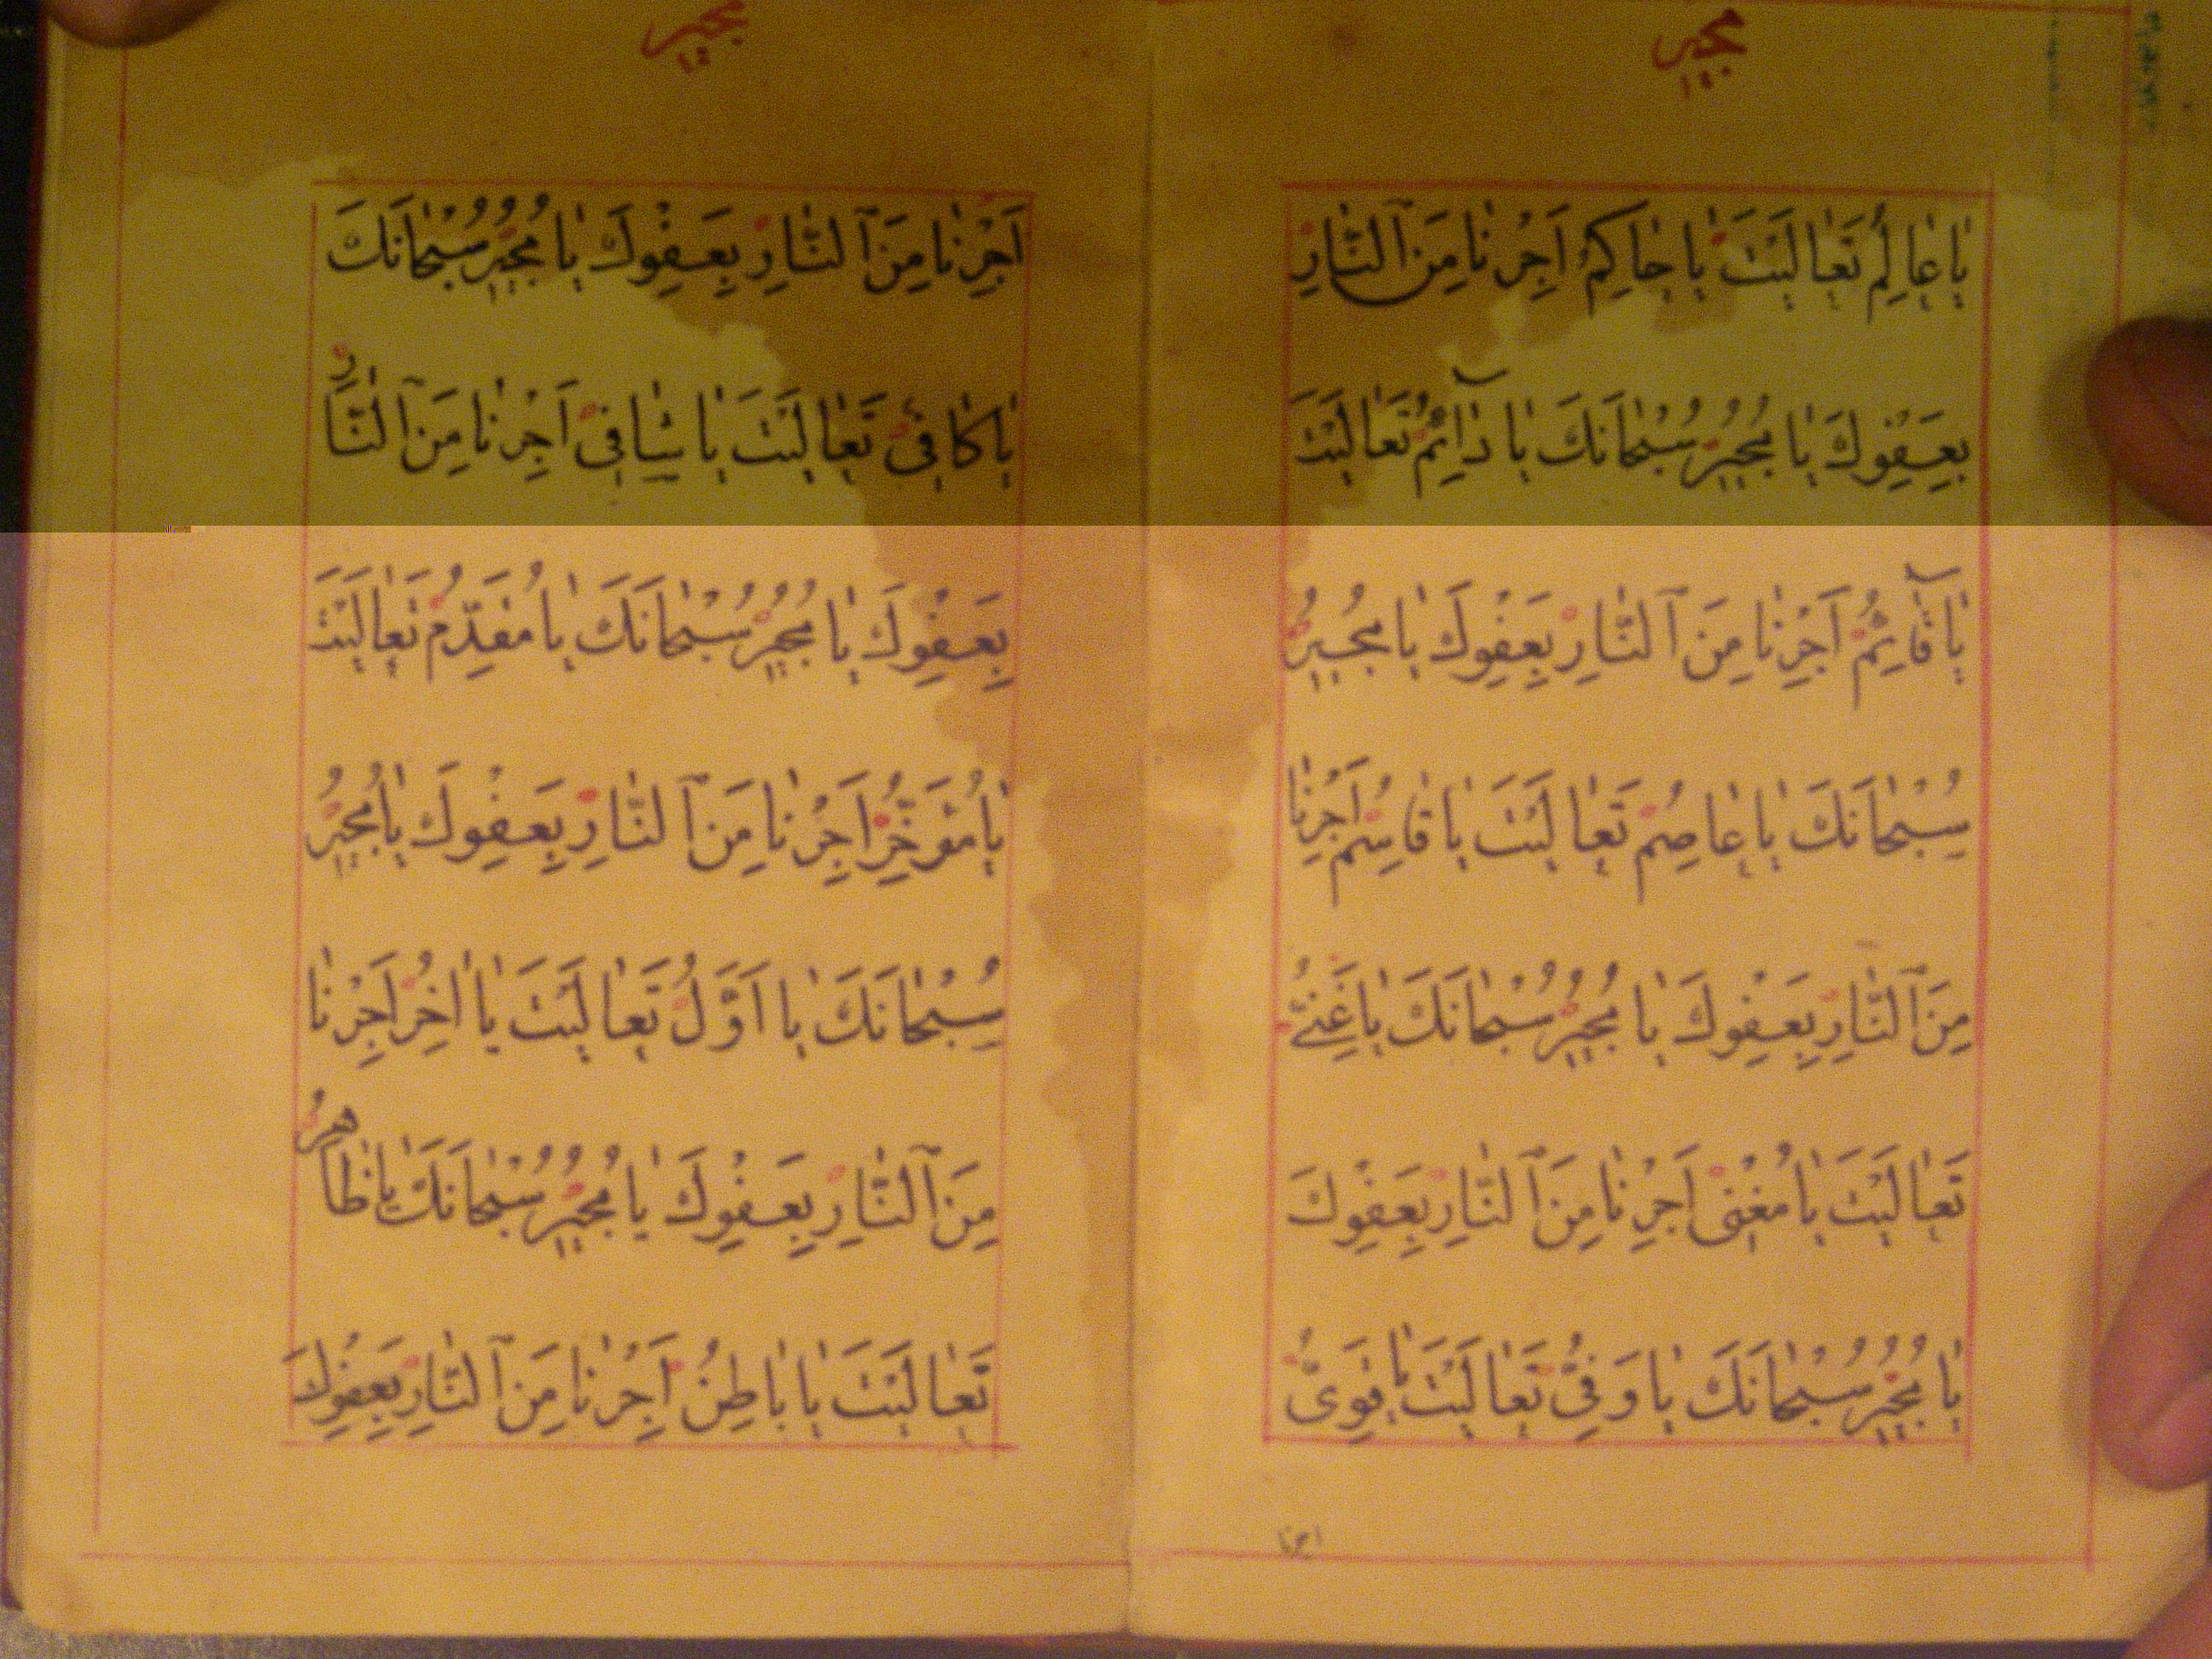 مجیر
یا عالِمُ تَعالَیْتَ یا حاکِمُ اَجِرْنا مِنَ النّارِ
بِعَفْوِكَ یا مُجیرُ سُبْحانَكَ یا دآئِمُ تَعالَیْتَ
یا قآئِمُ اَجِرْنا مِنَ النّارِ بِعَفْوِكَ یا مُجیرُ
سُبْحانَكَ یا عاصِمُ تَعالَیْتَ یا قاسِمُ اَجِرْنا
مِنَ النّارِ بِعَفْوِكَ یا مُجیرُ سُبْحانَكَ یا غَنِیُّ
تَعالَیْتَ یا مُغْنی اَجِرْنا مِنَ النّارِ بِعَفْوِكَ
یا مُجیرُ سُبْحانَكَ یا وَفِیُّ تَعالَیْتَ یا قَوِیُّ
اجرنا
مجیر
اَجِرْنا مِنَ النّارِ بِعَفْوِكَ یا مُجیرُ سُبْحانَكَ
یا کافی تَعالَیْتَ یا شافی اَجِرْنا مِنَ النّارِ
بِعَفْوِكَ یا مُجیرُ سُبْحانَكَ یا مُقَدِّمُ تَعالَیْتَ
یا مُؤَخِّرُ اَجِرْنا مِنَ النّارِ بِعَفْوِكَ یا مُجیرُ
سُبْحانَكَ یا اَوَّلُ تَعالَیْتَ یا اخِرُ اَجِرْنا
مِنَ النّارِ بِعَفْوِكَ یا مُجیرُ سُبْحانَكَ یا ظاهِرُ
تَعالَیْتَ یا باطِنُ اَجِرْنا مِنَ النّارِ بِعَفْوِكَ